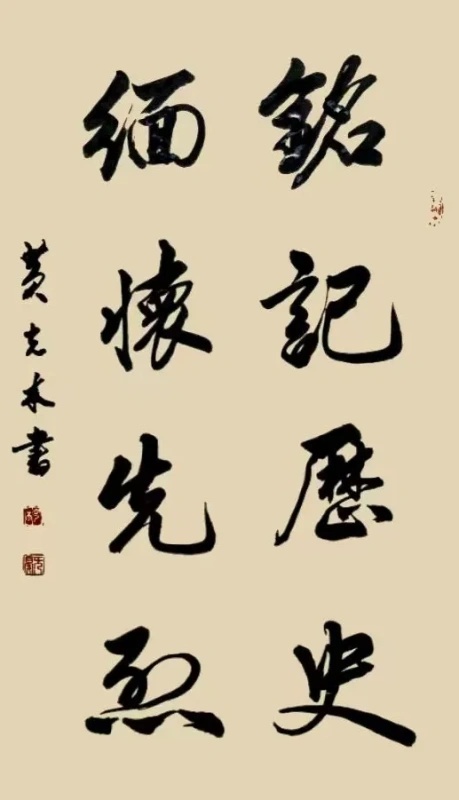 銘記歷史
緬懷先烈
黄木書